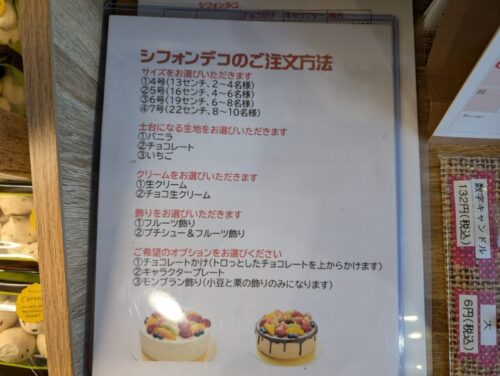 シフォンデコ
チョコかけ
キャラクター
シフォンデコのご注文方法
サイズをお選びいただきます
①4号(13センチ、2〜4名様)
②5号(16センチ、4〜6名様)
③6号(19センチ、6〜8名様)
④7号(22センチ、8〜10名様)
土台になる生地をお選びいただきます
①バニラ
②チョコレート
③いちご
クリームをお選びいただきます
①生クリーム
②チョコ生クリーム
飾りをお選びいただきます
①フルーツ飾り
②プチシュー&フルーツ飾り
ご希望のオプションをお選びください
①チョコレートかけ(トロっとしたチョコレートを上からかけます)
②キャラクタープレート
③モンブラン飾り(小豆と栗の飾りのみになります)
数字キャンドル
132円(税込)
大
6円(税込)